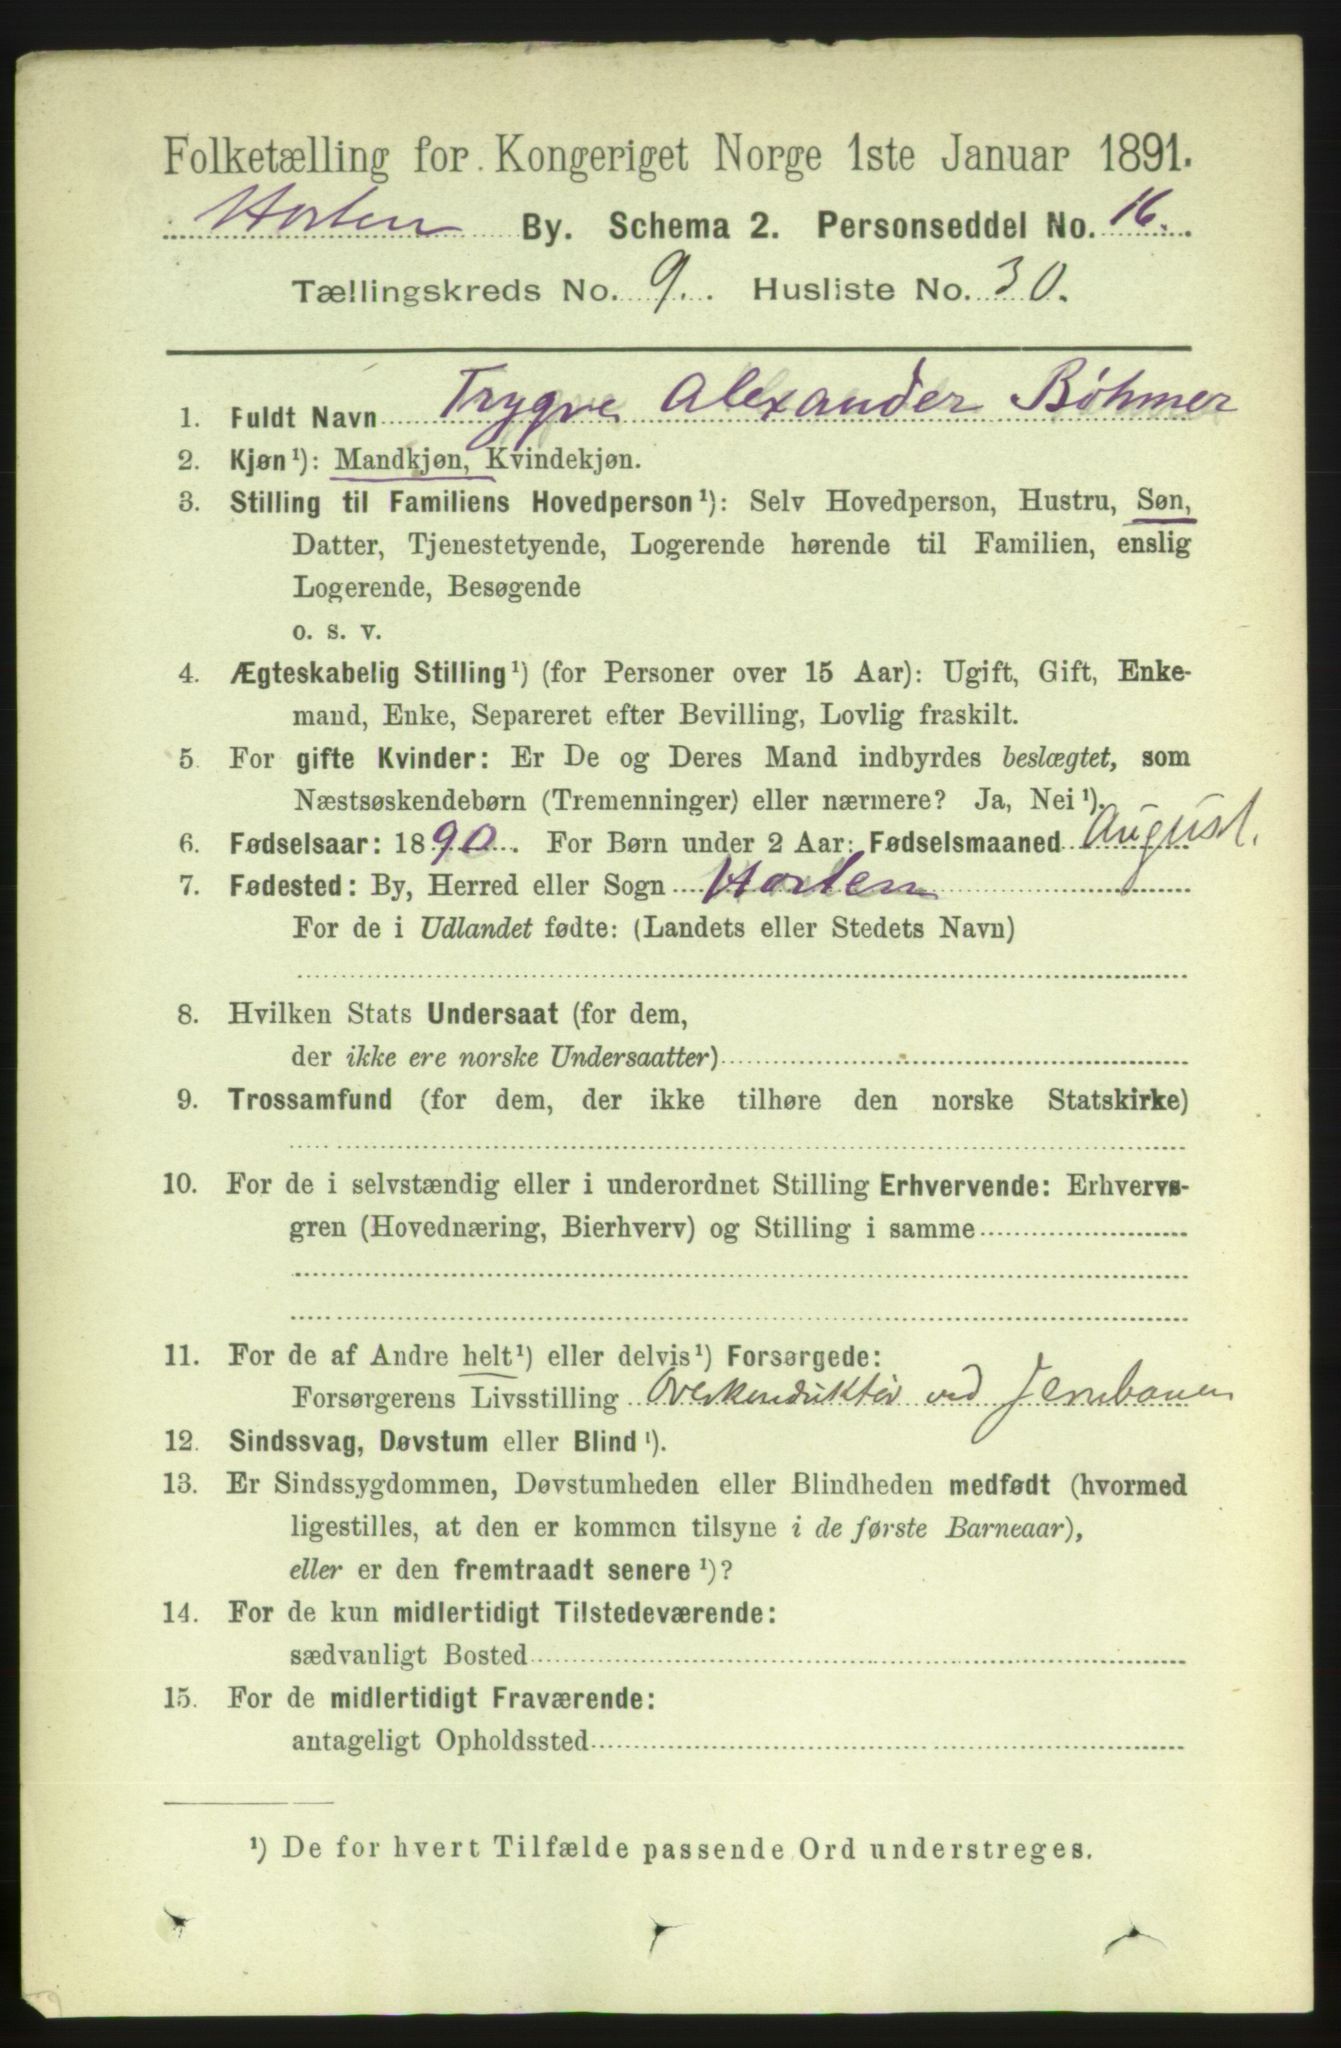 Folketælling for Kongeriget Norge 1ste Januar 1891.
Horten By. Schema 2. Personseddel No. 16.
Tællingskreds No. 9. Husliste No. 30.
1. Fuldt Navn Trygve Alexander Böhmer
2. Kjøn¹): Mandkjøn, Kvindekjøn.
3. Stilling til Familiens Hovedperson¹): Selv Hovedperson, Hustru, Søn,
Datter, Tjenestetyende, Logerende hørende til Familien, enslig
Logerende, Besøgende
o. s. v.
4. Ægteskabelig Stilling¹) (for Personer over 15 Aar): Ugift, Gift, Enke-
mand, Enke, Separeret efter Bevilling, Lovlig fraskilt.
5. For gifte Kvinder: Er De og Deres Mand indbyrdes beslægtet, som
Næstsøskendebørn (Tremenninger) eller nærmere? Ja, Nei¹).
6. Fødselsaar: 1890. For Børn under 2 Aar: Fødselsmaaned August.
7. Fødested: By, Herred eller Sogn Horten
For de i Udlandet fødte: (Landets eller Stedets Navn)
8. Hvilken Stats Undersaat (for dem,
der ikke ere norske Undersaatter)
9. Trossamfund (for dem, der ikke tilhøre den norske Statskirke)
10. For de i selvstændig eller i underordnet Stilling Erhvervende: Erhvervs-
gren (Hovednæring, Bierhverv) og Stilling i samme
11. For de af Andre helt¹) eller delvis¹) Forsørgede:
Forsørgerens Livsstilling Overkonduktør ved Jernbanen
12. Sindssvag, Døvstum eller Blind¹).
13. Er Sindssygdommen, Døvstumheden eller Blindheden medfødt (hvormed
ligestilles, at den er kommen tilsyne i de første Barneaar),
eller er den fremtraadt senere¹)?
14. For de kun midlertidigt Tilstedeværende:
sædvanligt Bosted
15. For de midlertidigt Fraværende:
antageligt Opholdssted
¹) De for hvert Tilfælde passende Ord understreges.